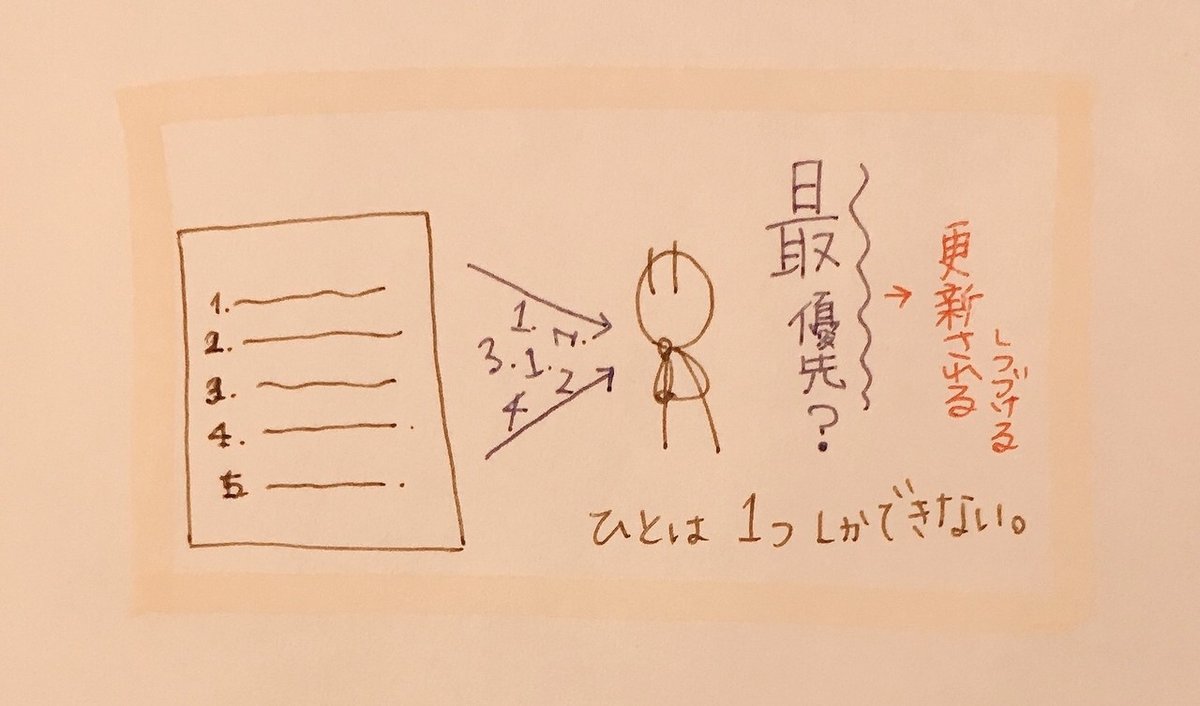 1.
2.
3.
4.
5
1.
3. 1. 2.
4 2
最優先?
更新される
しつづける
ひとは1つしかできない。